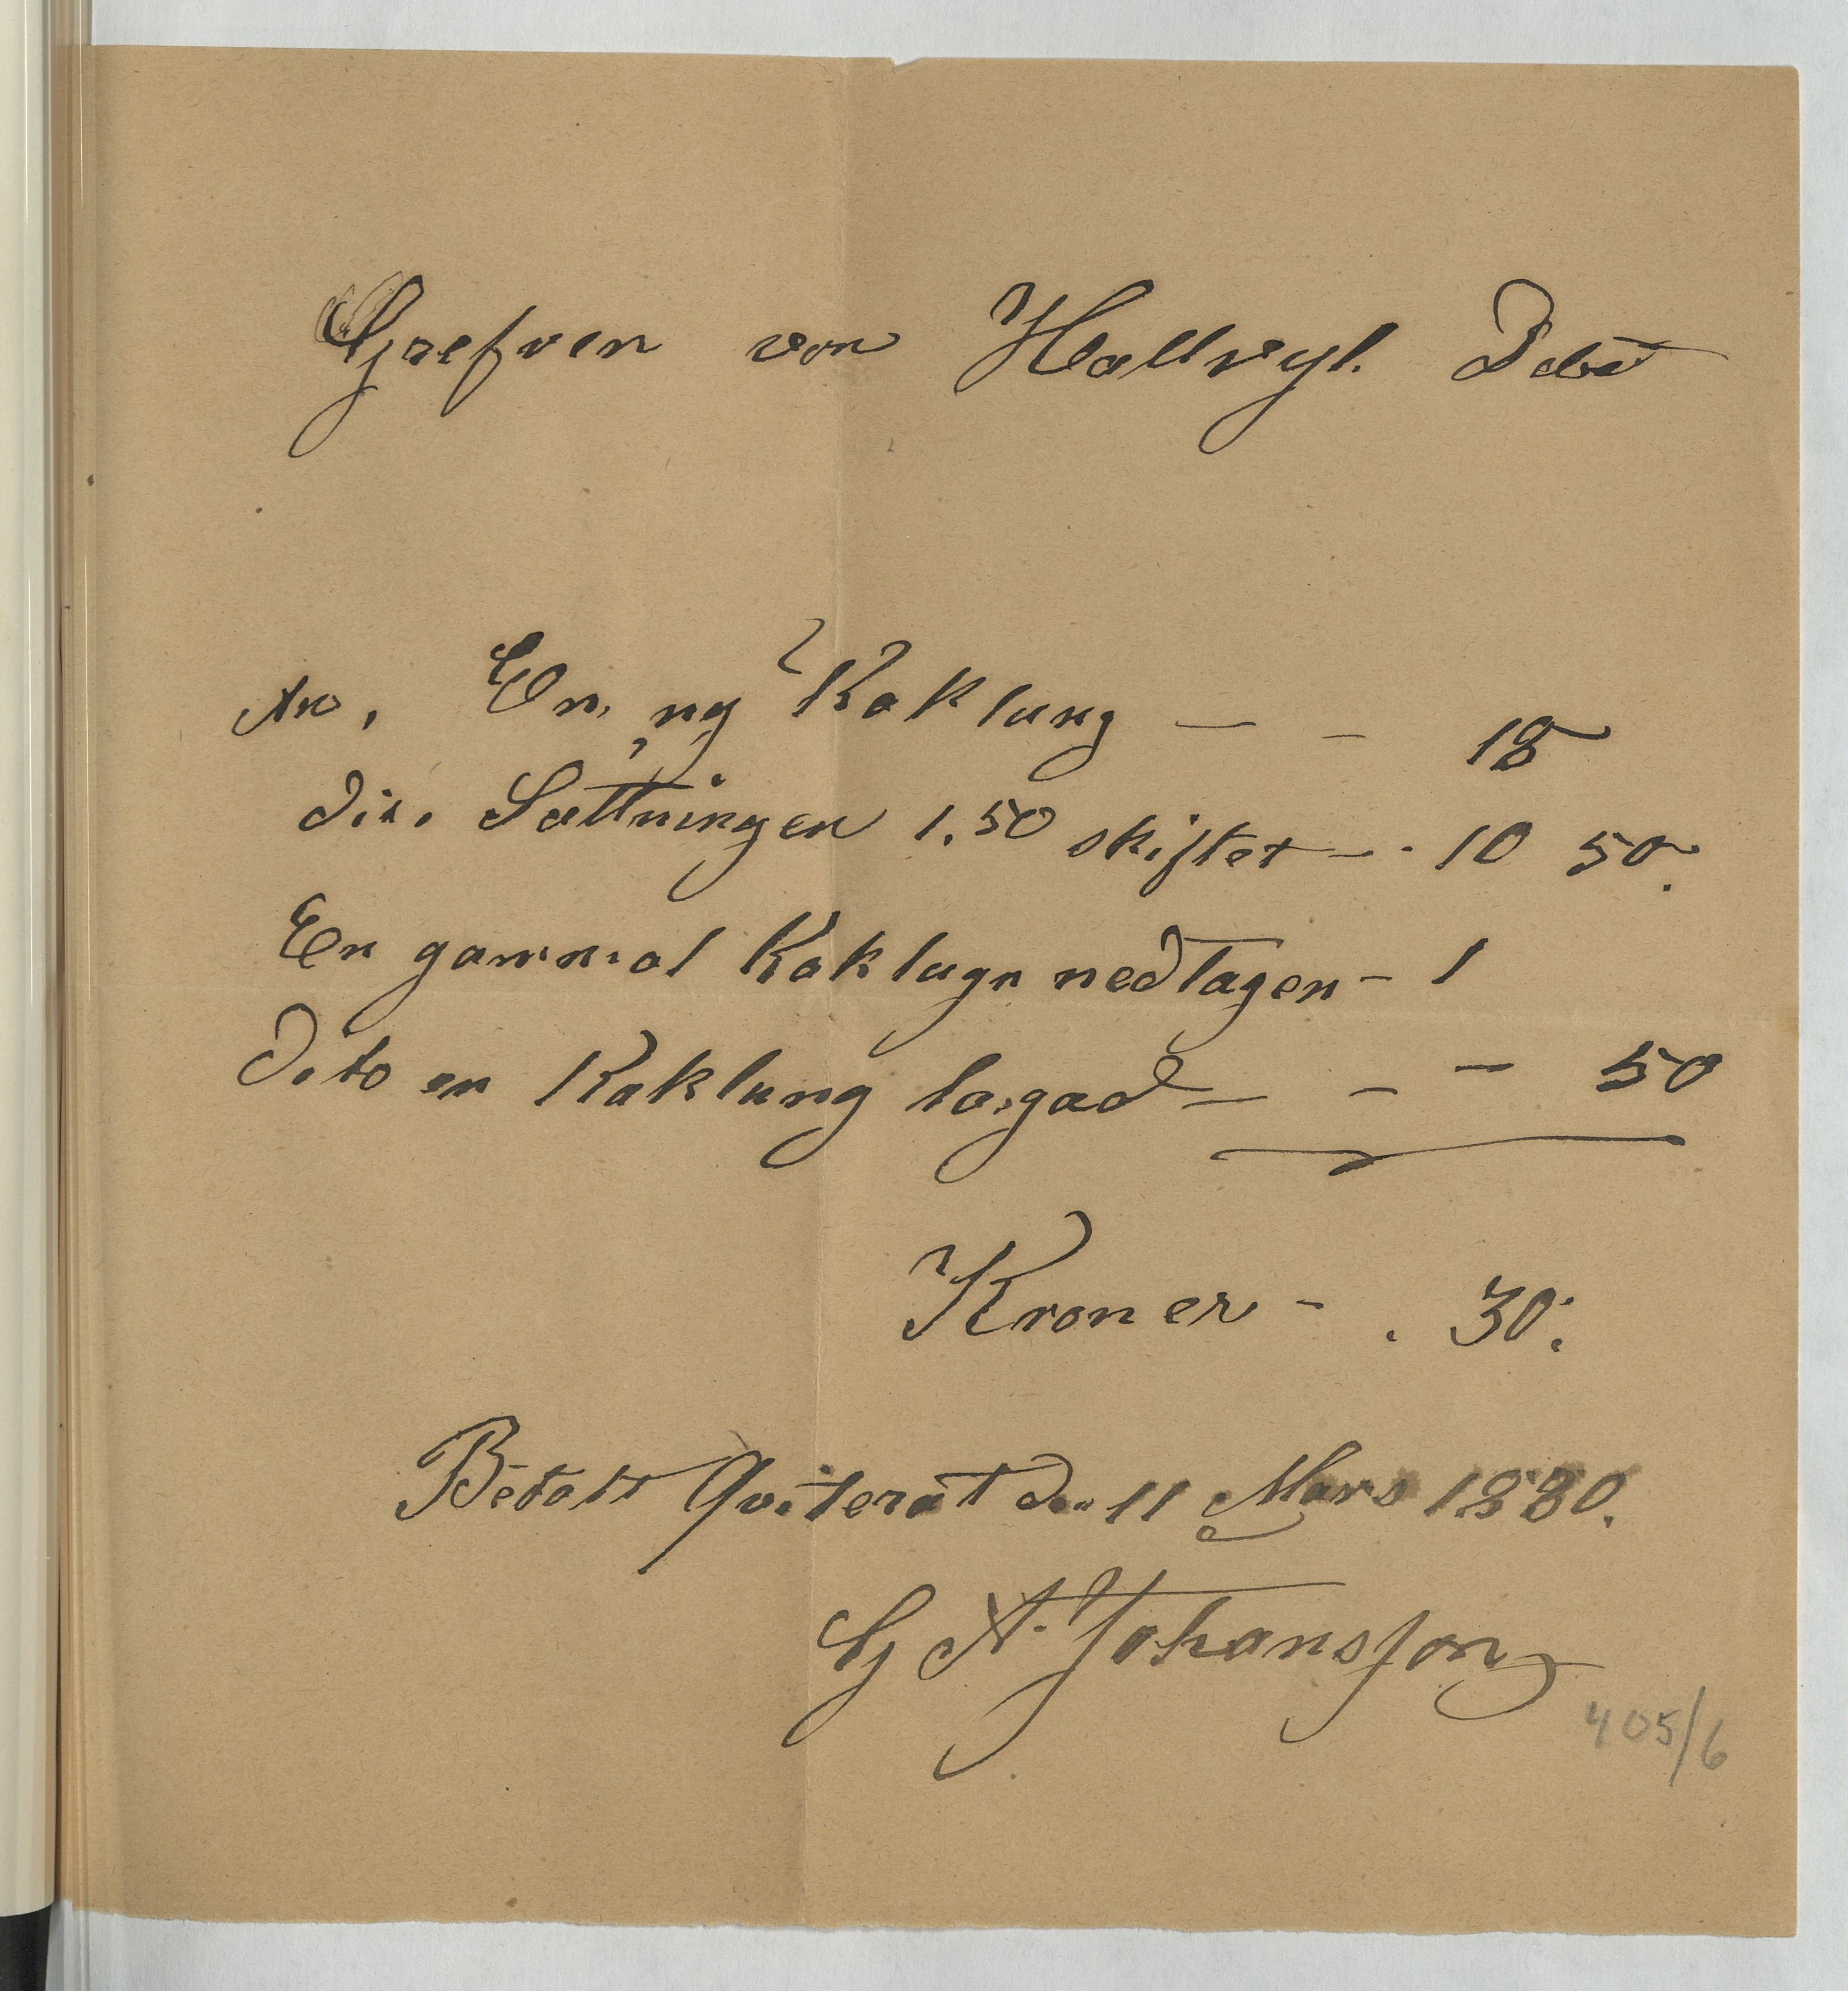 Grefven von Hallvyl. Debet
An, En, ny Kaklung — – 18
Dit. Sättningen 1.50 skiftet – . 10 50.
En gammal Kaklugn nedtagen – 1
Dito en Kaklung lagad — – – 50
Kroner – . 30.
Betalt Qviterat den 11 Mars 1880.
G A. Johansson
405/6